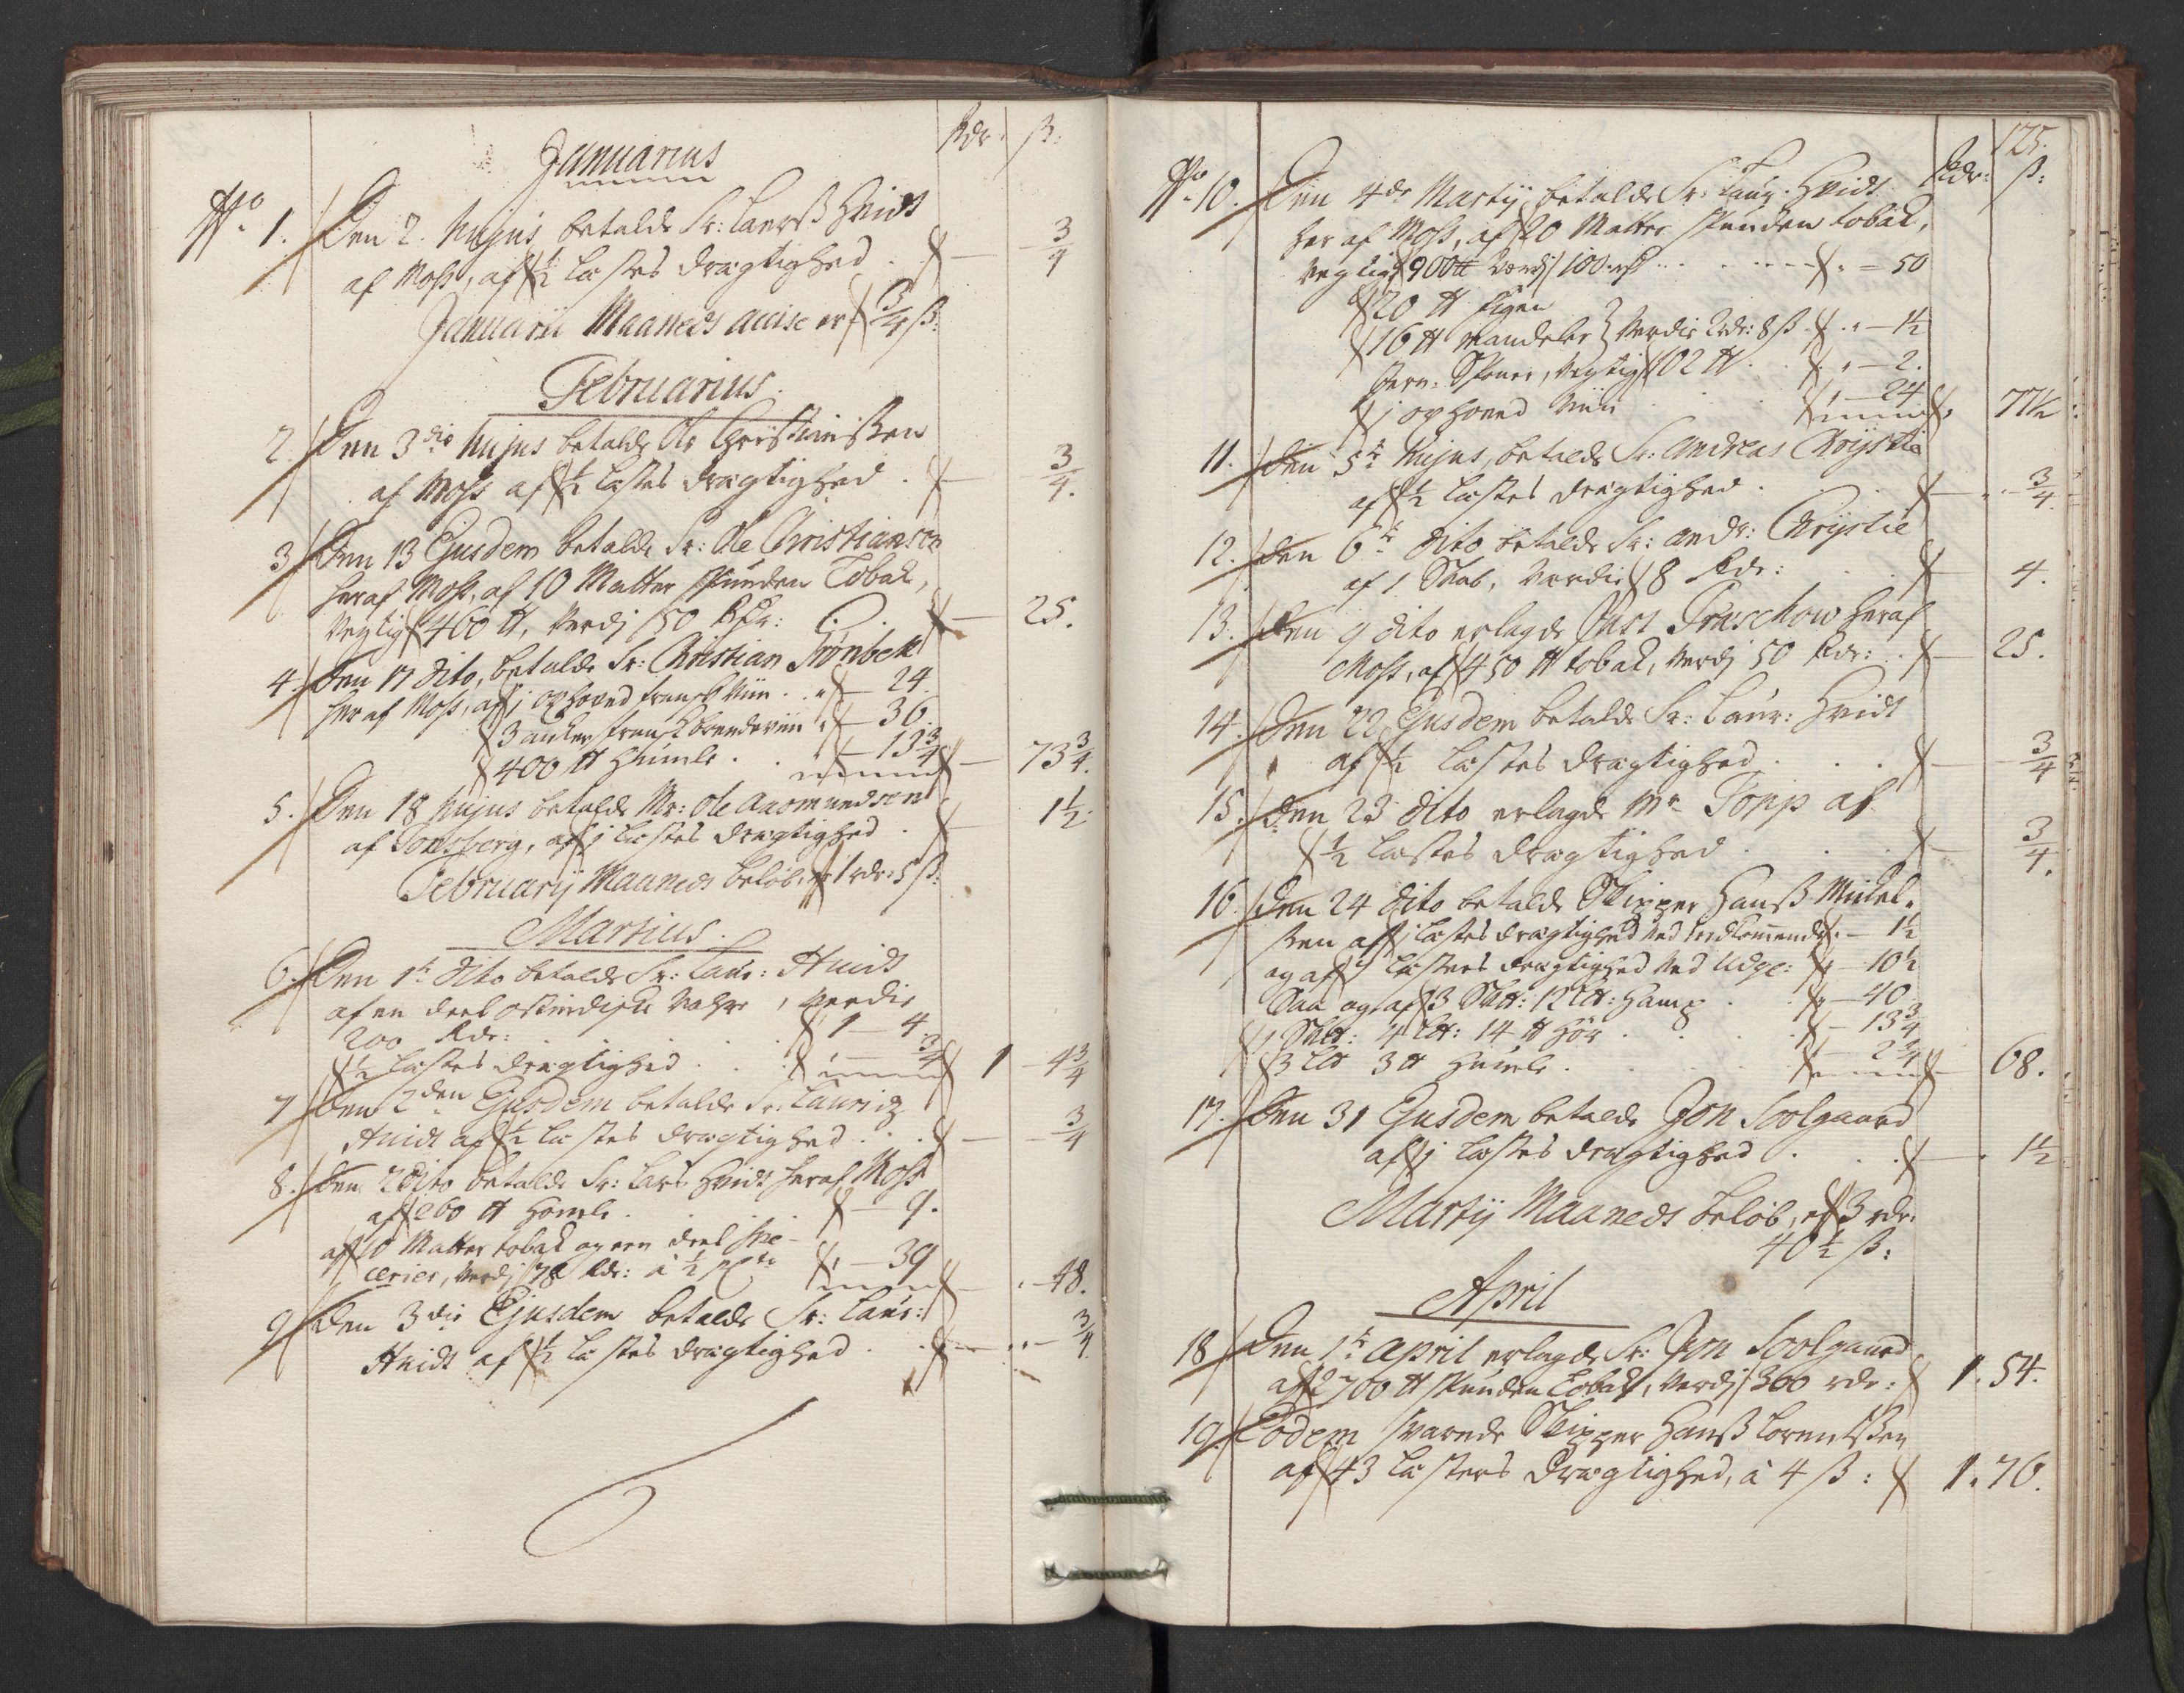 Januarius
Rdr: ß:
No 1. Den 2. hujus betalde Sr: Laurß Hvidt
af Moss, af ½ Læstes drægtighed . . — ¾
Januarii Maaneds acise er ¾ ß:
Februarius.
2. Den 3die hujus betalde Ole Christianßen
af Moss af ½ Læstes drægtighed . — ¾.
3. Den 13 Ejusdem betalde Sr: Ole Christiansen
her af Moss, af 10 Matter spunden Tobak,
Vegtig 460 ℔, Verdj 50 Rdr: . . — 25.
4. Den 17 dito, betalde Sr: Christian Grønbek
her af Moss, af 1 oxhoved fransk Viin . . — 24.
3 anker fransk brændeviin — 36.
400 ℔ Humle . . — 13¾ — 73¾.
5. Den 18 hujus betalde Mr: Ole Aasmundsen
af Tonsberg, af 1 Læstes drægtighed . — 1½.
Februarij Maaneds beløb, er 1 rdr: 5 ß:
Martius.
6. Den 1te dito betalde Sr: Laur: Hvidt
af en deel ostindiske Vahre, Verdie
200 Rdr: . . . 1 — 4.
½ Læstes drægtighed . . . ¾ 1 — 4¾
7. Den 2den Ejusdem betalde Sr: Lauridz
Hvidt af ½ Læstes drægtighed . . . — ¾
8. Den 2 dito betalde Sr: Lars Hvidt her af Moss
af 260 ℔ Homle . . . — 9.
af 10 Matter tobak og een deel spe-
cerier, Verdj 78 Rdr: à ½ pCto — 39 — 48.
9. Den 3die Ejusdem betalde Sr: Laur:
Hvidt af ½ Læstes drægtighed . . — ¾
125.
Rdr: ß:
No 10. Den 4de Martij betalde Sr: Laur. Hvidt
her af Moss, af 20 Matter spunden tobak,
Vegtig 900 ℔ Værdj 100 rdr . . . — 50
20 ℔ Figen
16 ℔ Mandeler } Verdie 2 rdr: 8 ß . — 1½
Vegtig 102 ℔ . . — 2.
1 oxhoved Viin . . . — 24 — 77½
11. Den 5te hujus, betalde Sr: Andreas Chrystie
af ½ Læstes drægtighed . . . — ¾.
12. Den 6te dito betalde Sr: Andr: Chrystie
af 1 Skab, Verdie 8 Rdr: . . — 4.
13. Den 9 dito erlagde Just Treschow her af
Moss, af 450 ℔ tobak, Verdj 50 Rdr: . — 25.
14. Den 22 Ejusdem betalde Sr: Laur: Hvidt
af ½ Læstes drægtighed . . . — ¾
15. Den 23 dito erlagde Mr Topp af
½ Læstes drægtighed . . . — ¾.
16. Den 24 dito betalde Skipper Hanß Mickel-
ßen af 1 Læstes drægtighed Ved indkommende — 1½
og af 7 Læsters drægtighed Ved Udge: — 10½
Saa og af 3 S℔: 12 L℔: Hamp . . — 40
1 S℔: 4 L℔: 14 ℔ Hør . . . — 13¾
3 L℔ 3 ℔ Humle . . . — 2¼ — 68.
17. Den 31 Ejusdem betalde Jon Soolgaard
af 1 Læstes drægtighed . . . — 1½
Martij Maaneds beløb, er 3 rdr:
40½ ß:
April
18. Den 1te April erlagde Sr: Jon Soolgaard
af 2700 ℔ spunden Tobak, Verdj 300 rdr: 1. 54.
19. Eodem svarede Skipper Hanß Lorentßen
af 43 Læsters Drægtighed, à 4 ß: 1. 76.